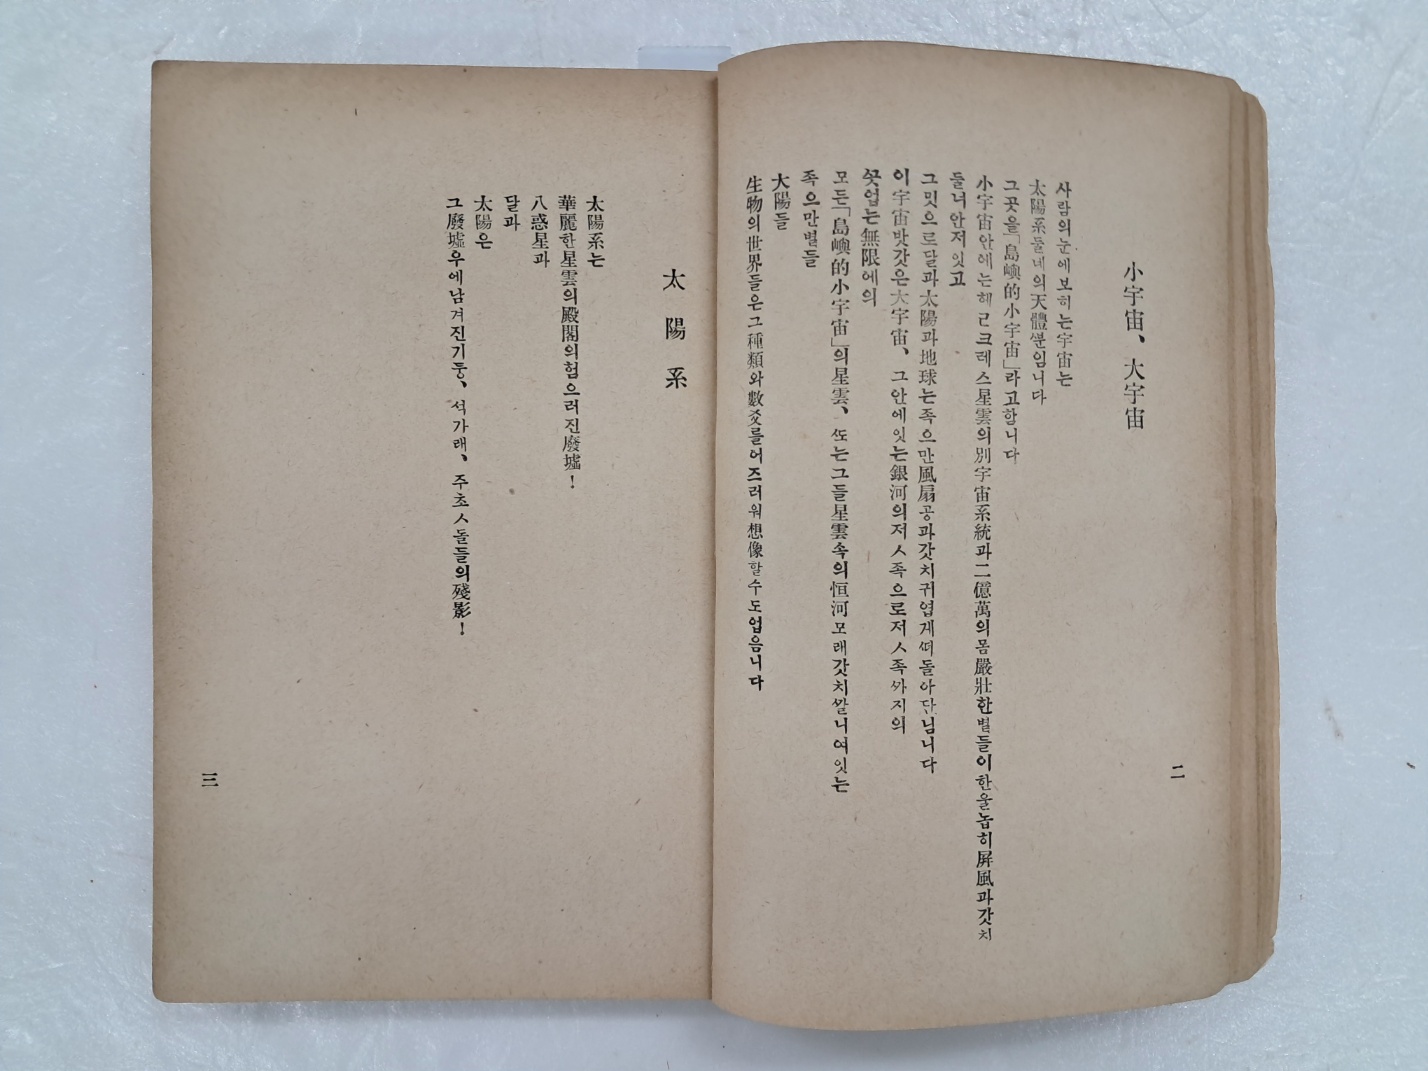 小宇宙、大宇宙
사람의눈에보히는宇宙는
太陽系둘네의天體ᄲᅮᆫ임니다
그곳을「島嶼的小宇宙」라고합니다
小宇宙안에는헤ᄅ크레스星雲의別宇宙系統과二億萬의몸嚴壯한별들이한울놉히屛風과갓치
들너안저잇고
그밋으로달과太陽과地球는족으만風扇공과갓치귀엽게ᄯᅥ돌아단님니다
이宇宙밧갓은大宇宙、그안에잇는銀河의저ㅅ족으로저ㅅ족ᄭᅡ지의
ᄭᅳᆺ업는無限에의
모든「島嶼的小宇宙」의星雲、ᄯᅩ는그들星雲속의恒河모래갓치ᄭᅡᆯ니여잇는
족으만별들
大陽들
生物의世界들은그種類와數爻를어즈러워想像할수도업음니다
二
太陽系
太陽系는
華麗한星雲의殿閣의험으러진廢墟!
八惑星과
달과
太陽은
그廢墟우에남겨진기둥、석가래、주초ㅅ돌들의殘影!
三